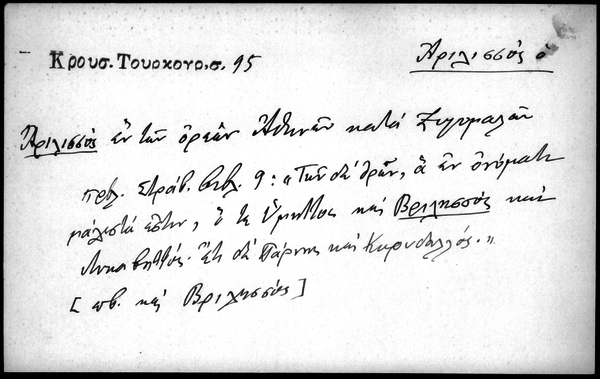 Κρουσ. Τουρκογρ, σ. 95
Ἀριλισσὸς ὁ
Ἀριλισσὸς ἓν τῶν ὀρεῶν Ἀθηνῶν κατὰ Ζυγομαλᾶν
πρβλ. Στράβ. βιβλ. 9: «Τῶν δὲ ὀρῶν, ἃ ἐν ὀνόματι
μάλιστά ἐστιν, ὅ τε Ὑμηττὸς καὶ Βριλησσὸς καὶ
Λυκαβηττός. Ἔτι δὲ Πάρνης καὶ Κορυδαλλός.»
[ πβ. καὶ Βριλησσὸς ]